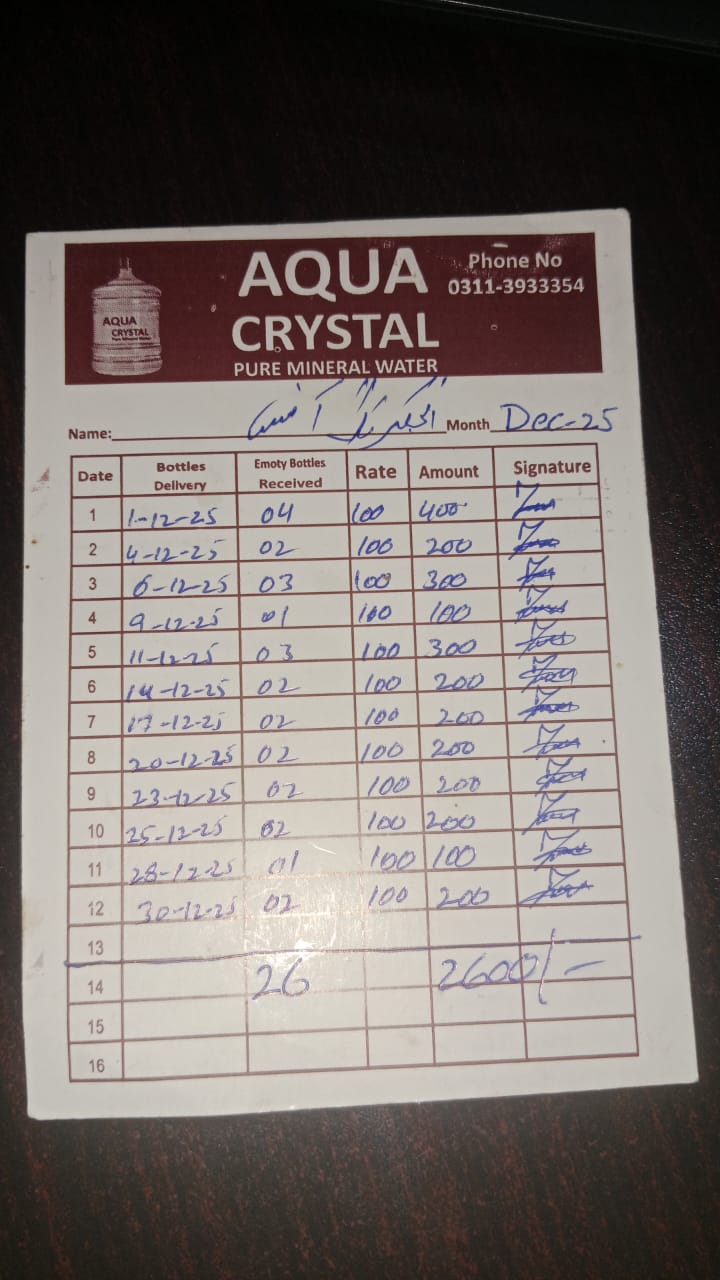 AQUA
CRYSTAL
PURE MINERAL WATER
Phone No
0311-3933354
AQUA
CRYSTAL
Pure Mineral Water
Name: Month Dec-25
Date Bottles Delivery Emoty Bottles Received Rate Amount Signature
1 1-12-25 04 100 400
2 4-12-25 02 100 200
3 6-12-25 03 100 300
4 9-12-25 01 100 100
5 11-12-25 03 100 300
6 14-12-25 02 100 200
7 17-12-25 02 100 200
8 20-12-25 02 100 200
9 23-12-25 02 100 200
10 25-12-25 02 100 200
11 28-12-25 01 100 100
12 30-12-25 02 100 200
13
14 26 2600/-
15
16